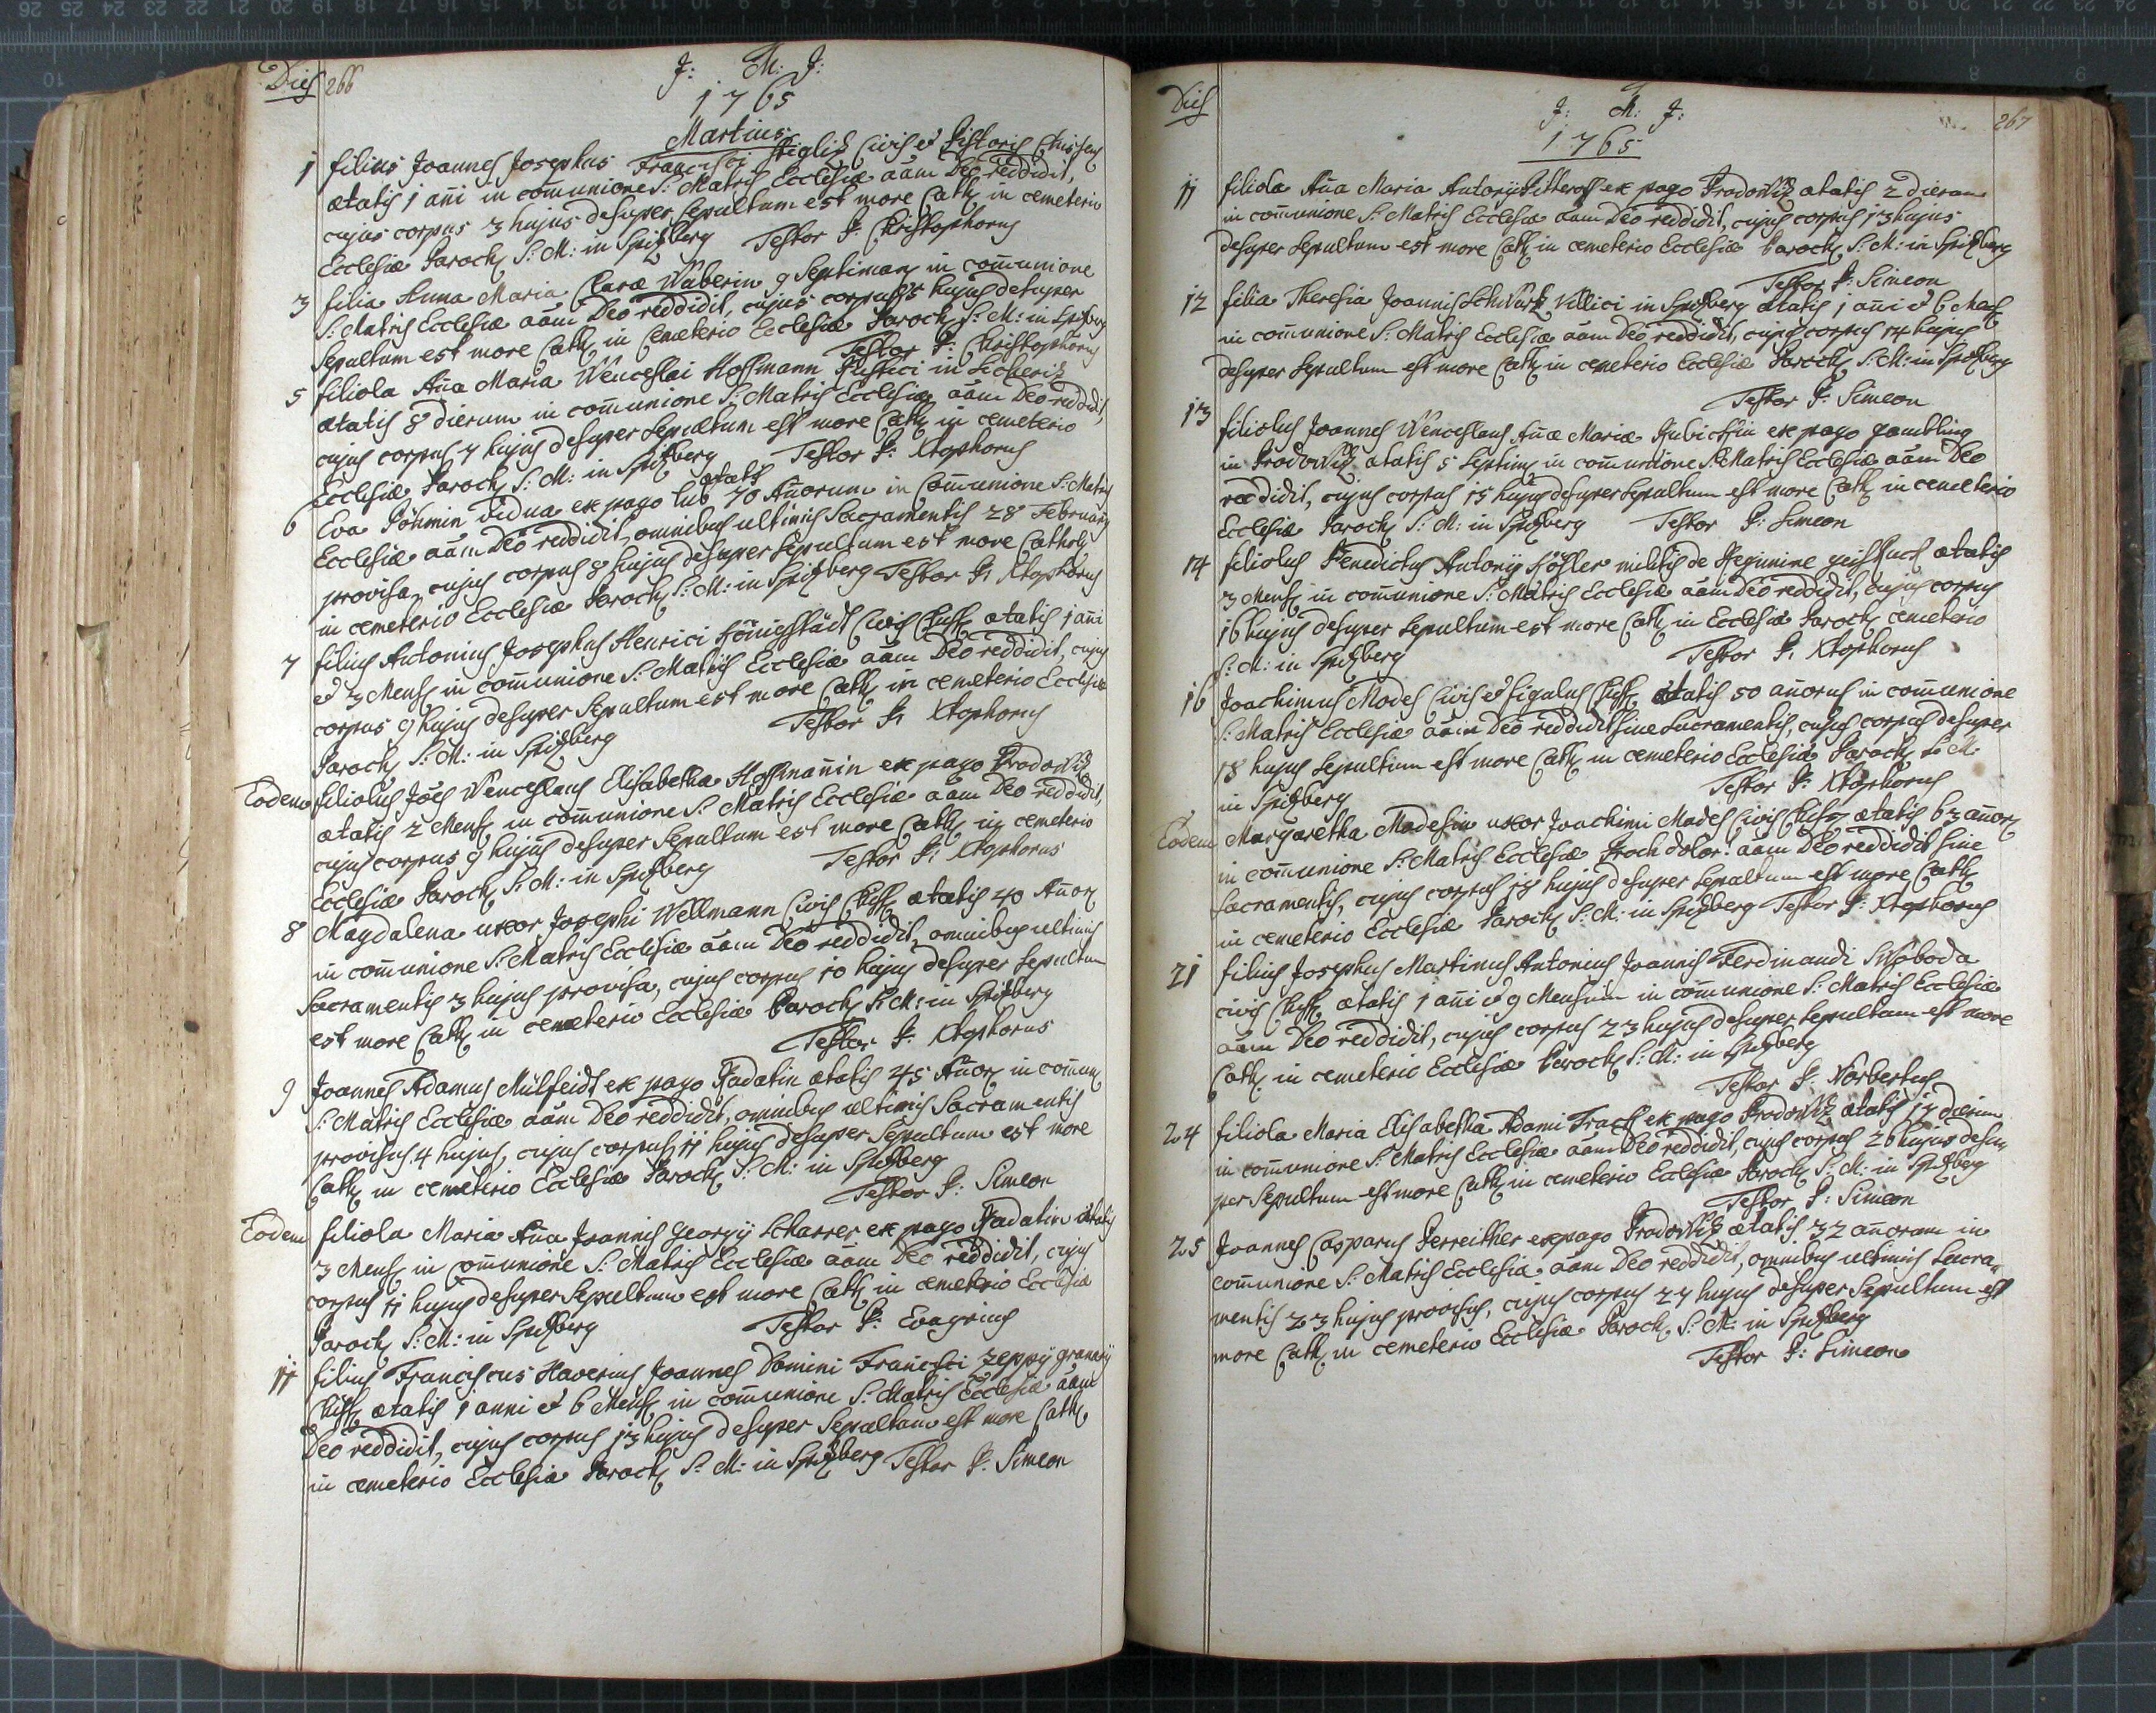 Dies 266
J: M: J:
1765
Martius
1 filius Joannes Josephus Francisci Civis et Pistoris
ætatis 1 añi in com̃unione S: Matris Ecclesiæ aãm Deo reddidit,
cujus corpus 3 hujus desuper sepultum est more Cath in cemeterio
Ecclesiæ Paroch S: M: in Spitzberg Testor P: Christophorus
3 filia Anna Maria Claræ Waberin 9 Septiman in com̃unione
S: Matris Ecclesiæ aãm Deo reddidit, cujus corpus 5 hujus desuper
Sepultum est more Cath in Cemeterio Ecclesiæ Paroch S: M: in Spitzberg
Testor P: Christophorus
5 filiola Aña Maria Wenceslai Hoffmann Rustici in
ætatis 8 dierum in com̃unione S: Matris Ecclesiæ aãm Deo reddidit,
cujus corpus 7 hujus desuper Sepultum est more Cath in cemeterio
Ecclesiæ Paroch S: M: in Spitzberg Testor P: Xtophorus
ætatis
6 Eva Böhmin vidua ex pago Lub 70 Añorum in Com̃unione S: Matris
Ecclesiæ aãm Deo reddidit, omnibus ultimis Sacramentis 28 February
provisa, cujus corpus 8 hujus desuper Sepultum est more Cathol
in cemeterio Ecclesiæ Paroch S: M: in Spitzberg Testor P: Xtophorus
7 filius Antonius Josephus Henrici Königstädt Civis ætatis 1 añi
et 3 Mens in com̃unione S: Matris Ecclesiæ aãm Deo reddidit, cujus
corpus 9 hujus desuper Sepultum est more Cath in cemeterio Ecclesiæ
Paroch S: M: in Spitzberg Testor P: Xtophorus
Eodem filiolus Jões Wenceslaus Elisabetha Hoffmañin ex pago Prodowitz
ætatis 2 Mens in com̃unione S: Matris Ecclesiæ aãm Deo reddidit,
cujus corpus 9 hujus desuper Sepultum est more Cath in cemeterio
Ecclesiæ Paroch S: M: in Spitzberg Testor P: Xtophorus
8 Magdalena uxor Josephi Wellmann Civis ætatis 40 Añor
in com̃unione S: Matris Ecclesiæ aãm Deo reddidit, omnibus ultimis
Sacramentis 3 hujus provisa, cujus corpus 10 hujus desuper Sepultum
est more Cath in cemeterio Ecclesiæ Paroch S: M: in Spitzberg
Testor P: Xtophorus
9 Joannes Adamus Mülfeidt ex pago Radatin ætatis 45 Añor in com̃un
S: Matris Ecclesiæ aãm Deo reddidit, omnibus ultimis Sacramentis
provisus 4 hujus, cujus corpus 11 hujus desuper Sepultum est more
Cath in cemeterio Ecclesiæ Paroch S: M: in Spitzberg
Testor P: Simeon
Eodem filiola Maria Aña Joannis Georgij Scharrer ex pago Radatin ætatis
3 Mens in com̃unione S: Matris Ecclesiæ aãm Deo reddidit, cujus
corpus 11 hujus desuper Sepultum est more Cath in cemeterio Ecclesiæ
Paroch S: M: in Spitzberg Testor P: Evagrius
11 filius Franciscus Xaverius Joannes Domini Francisci Zeppij granarij
ætatis 1 anni et 6 Mens in com̃unione S: Matris Ecclesiæ aãm
Deo reddidit, cujus corpus 13 hujus desuper Sepultum est more Cath
in cemeterio Ecclesiæ Paroch S: M: in Spitzberg Testor P. Simeon
Dies
J: M: J:
267
1765
11 filiola Aña Maria Antonij ex pago Prodowitz ætatis 2 dierum
in com̃unione S: Matris Ecclesiæ aãm Deo reddidit, cujus corpus 13 hujus
desuper Sepultum est more Cath in cemeterio Ecclesiæ Paroch S: M: in Spitzberg
Testor P: Simeon
12 filia Theresia Joannis Schwartz Villici in Spitzberg ætatis 1 añi et 6 Mens
in com̃unione S: Matris Ecclesiæ aãm Deo reddidit, cujus corpus 14 hujus
desuper Sepultum est more Cath in cemeterio Ecclesiæ Paroch S: M: in Spitzberg
Testor P: Simeon
13 filiolus Joannes Wenceslaus Añæ Mariæ ex pago gambling
in Prodowitz ætatis 5 Septim in com̃unione S: Matris Ecclesiæ aãm Deo
reddidit, cujus corpus 15 hujus desuper Sepultum est more Cath in cemeterio
Ecclesiæ Paroch S: M: in Spitzberg Testor P: Simeon
14 filiolus Benedictus Antonij militis de Regimine ætatis
3 Mens in com̃unione S: Matris Ecclesiæ aãm Deo reddidit, cujus corpus
16 hujus desuper Sepultum est more Cath in Ecclesiæ Paroch cemeterio
S: M: in Spitzberg Testor P: Xtophorus
16 Joachimus Modes Civis et figulus ætatis 50 añorus in com̃unione
S: Matris Ecclesiæ aãm Deo reddidit sine Sacramentis, cujus corpus desuper
18 hujus Sepultum est more Cath in cemeterio Ecclesiæ Paroch S: M:
in Spitzberg Testor P: Xtophorus
Eodem Margaretha Modesin uxor Joachimi Modes Civis ætatis 63 añor
in com̃unione S: Matris Ecclesiæ Proch dolor! aãm Deo reddidit sine
Sacramentis, cujus corpus 18 hujus desuper Sepultum est more Cath
in cemeterio Ecclesiæ Paroch S: M: in Spitzberg Testor P: Xtophorus
21 filius Josephus Martinus Antonius Joannis Ferdinandi Swoboda
civis ætatis 1 añi et 9 Mensium in com̃unione S: Matris Ecclesiæ
aãm Deo reddidit, cujus corpus 23 hujus desuper Sepultum est more
Cath in cemeterio Ecclesiæ Paroch S: M: in Spitzberg
Testor P: Norbertus
24 filiola Maria Elisabetha Adami ex pago Prodowitz ætatis 17 dierum
in com̃unione S: Matris Ecclesiæ aãm Deo reddidit, cujus corpus 26 hujus desu-
per Sepultum est more Cath in cemeterio Ecclesiæ Paroch S: M: in Spitzberg
Testor P: Simeon
25 Joannes Casparus Perreither ex pago Prodowitz ætatis 32 añorum in
com̃unione S: Matris Ecclesiæ aãm Deo reddidit, omnibus ultimis Sacra-
mentis 23 hujus provisus, cujus corpus 27 hujus desuper Sepultum est
more Cath in cemeterio Ecclesiæ Paroch S: M: in Spitzberg
Testor P: Simeon